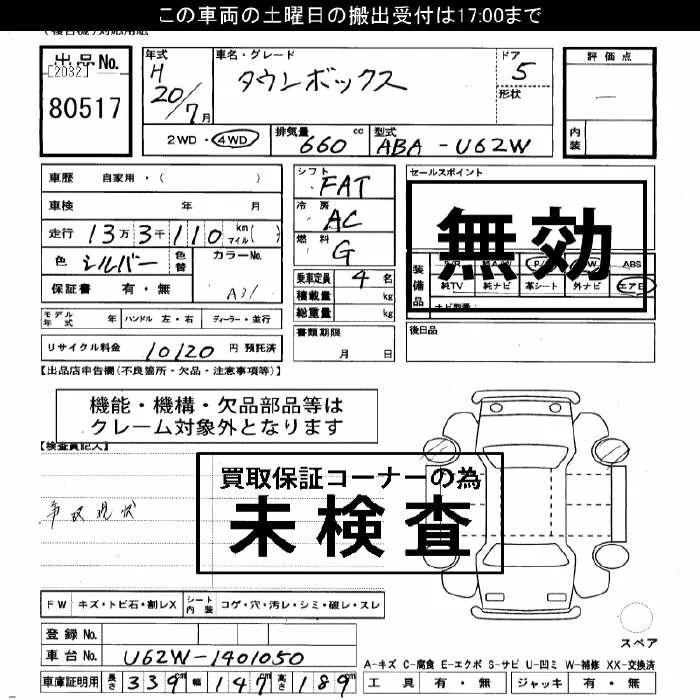 この車両の土曜日の搬出受付は17:00まで
出品No.
[2032]
80517
年式
H
20/7月
車名・グレード
タウンボックス
ドア
5
形状
評価点
内装
2WD・4WD
排気量
660 cc
型式
ABA-U62W
車歴 自家用・( )
車検 年 月
走行 13万3千110 km マイル( )
色 シルバー 色替
カラーNo.
A31
保証書 有・無
シフト
FAT
冷房
AC
燃料
G
乗車定員 4名
積載量 kg
総重量 kg
セールスポイント
無効
装備品
ABS
純TV 純ナビ 革シート 外ナビ エアB
ナビ型番:
モデル年式 年 ハンドル 左・右 ディーラー・並行
リサイクル料金 10120 円 預託済
書類期限
月 日
後日品
【出品店申告欄(不良箇所・欠品・注意事項等)】
機能・機構・欠品部品等は
クレーム対象外となります
【検査員記入】
買取保証コーナーの為
未検査
事故現状
FW キズ・トビ石・割レX シート内装 コゲ・穴・汚レ・シミ・破レ・スレ
登録No.
車台No. U62W-1401050
車庫証明用 長さ 339m 幅 147m 高さ 189m
スペア
A-キズ C-腐食 E-エクボ S-サビ U-凹ミ W-補修 XX-交換済
工具 有・無 ジャッキ 有・無